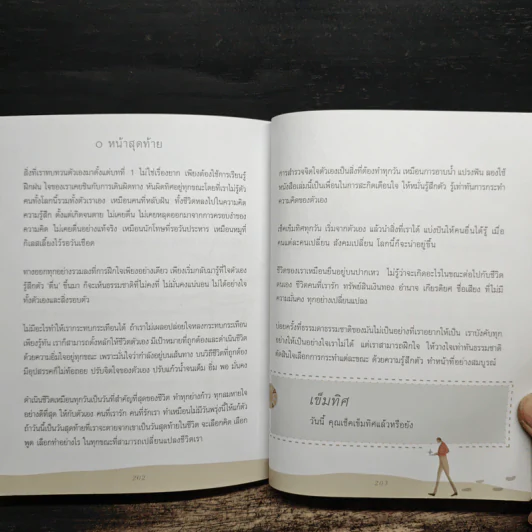 หน้าสุดท้าย
สิ่งที่เราทบทวนตัวเองมาตั้งแต่บทที่ 1 ไม่ใช่เรื่องยาก เพียงต้องใช้การเรียนรู้
ฝึกฝน ใจของเราเคยชินกับการเดินผิดทาง หันผิดทิศอยู่ทุกขณะโดยที่เราไม่รู้ตัว
คนทั้งโลกนี้รวมทั้งตัวเราเอง เหมือนคนที่หลับฝัน ทั้งชีวิตหลงไปในความคิด
ความรู้สึก ตั้งแต่เกิดจนตาย ไม่เคยตื่น ไม่เคยหลุดออกมาจากการครอบงำของ
ความคิด ไม่เคยตื่นอย่างแท้จริง เหมือนนักโทษที่รอวันประหาร เหมือนหมูที่
กิเลสเลี้ยงไว้รอวันเชือด
ทางออกทุกอย่างรวมลงที่การฝึกใจเพียงอย่างเดียว เพียงเริ่มกลับมารู้ที่ใจตัวเอง
รู้สึกตัว 'ตื่น' ขึ้นมา ก็จะเห็นธรรมชาติที่ไม่คงที่ ไม่มั่นคงแน่นอน ไม่ได้อย่างใจ
ทั้งตัวเองและสิ่งรอบตัว
ไม่มีอะไรทำให้เรากระทบกระเทือนได้ ถ้าเราไม่เผลอปล่อยใจหลงกระทบกระเทือน
เพียงรู้ทัน เราก็สามารถตั้งหลักให้ชีวิตตัวเอง มีเป้าหมายที่ถูกต้อง ดำเนินชีวิต
ด้วยความอิ่มใจอยู่ทุกขณะ เพราะมั่นใจว่ากำลังอยู่บนเส้นทาง บนวิถีชีวิตที่ถูกต้อง
มีอุปสรรคก็ไม่ท้อถอย ปรับจิตใจของตัวเอง ปรับแก้วน้ำจนเต็ม อิ่ม พอ มั่นคง
ดำเนินชีวิตเหมือนทุกวันเป็นวันสำคัญที่สุดของชีวิต ทำทุกย่างก้าว ทุกลมหายใจ
อย่างดีที่สุด ให้กับตัวเอง คนที่เรารัก คนที่รักเรา ทำเหมือนไม่มีวันพรุ่งนี้ให้แก้ตัว
ถ้าวันนี้เป็นวันสุดท้ายที่เราจะตายจากเขาเป็นวันสุดท้ายในชีวิต จะเลือกคิด เลือก
พูด เลือกทำอย่างไร ในทุกขณะที่สามารถเปลี่ยนแปลงชีวิตเรา
202
การสำรวจจิตใจตัวเองเป็นสิ่งที่ต้องทำทุกวัน เหมือนการอาบน้ำ แปรงฟัน ลองใช้
หนังสือเล่มนี้เป็นเพื่อนในการสะกิดเตือนใจ ให้หมั่นรู้สึกตัว รู้เท่าทันการกระทำ
ความคิดของตัวเอง
เช็คเข็มทิศทุกวัน เริ่มจากตัวเอง แล้วนำสิ่งที่เราได้ แบ่งปันให้คนอื่นได้รู้ เมื่อ
คนแต่ละคนเปลี่ยน สังคมเปลี่ยน โลกนี้ก็จะน่าอยู่ขึ้น
ชีวิตของเราเหมือนยืนอยู่บนปากเหว ไม่รู้ว่าจะเกิดอะไรในขณะต่อไปกับชีวิต
ตนเอง ชีวิตคนที่เรารัก ทรัพย์สินเงินทอง อำนาจ เกียรติยศ ชื่อเสียง ที่ไม่มี
ความมั่นคง ทุกอย่างเปลี่ยนแปลง
บ่อยครั้งที่ธรรมดาธรรมชาติของมันไม่เป็นอย่างที่เราอยากให้เป็น เราบังคับทุก
อย่างให้เป็นอย่างใจเราไม่ได้ แต่เราสามารถฝึกใจ ให้วางใจเท่าทันธรรมชาติ
ตัดสินใจเลือกการกระทำแต่ละขณะ ด้วยความรู้สึกตัว ทำหน้าที่อย่างสมบูรณ์
เข็มทิศ
วันนี้ คุณเช็คเข็มทิศแล้วหรือยัง
203